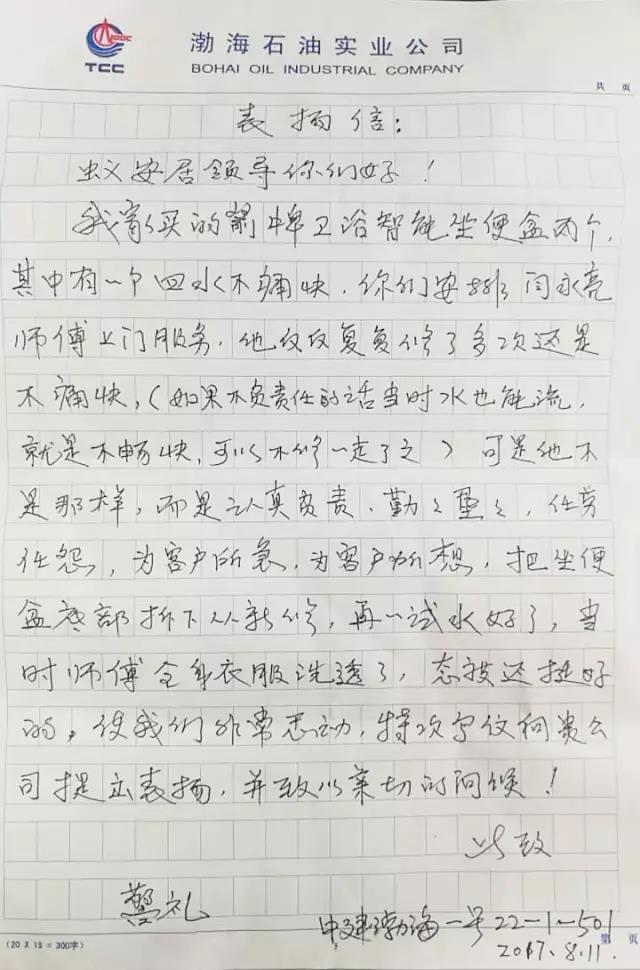 CNOOC
TCC
渤海石油实业公司
BOHAI OIL INDUSTRIAL COMPANY
共 页
表扬信:
蚁安居领导你们好!
我家买的箭牌卫浴智能坐便盆两个,
其中有一个四水不痛快.你们安排闫永亮
师傅上门服务.他反反复复修了多次还是
不痛快,(如果不负责任的话当时水也能流,
就是不畅快,可以不修一走了之)可是他不
是那样,而是认真负责.勤勤垦垦,任劳
任怨,为客户所急,为客户所想,把坐便
盆底部拆下从新修,再一试水好了,当
时师傅全身衣服洗透了,态度还挺好
的,使我们非常感动,特次写信向贵公
司提出表扬,并致以亲切的问候!
此致
敬礼
中建渤海一号22-1-501
2017.8.11.
(20 X 15 = 300字)
第 页